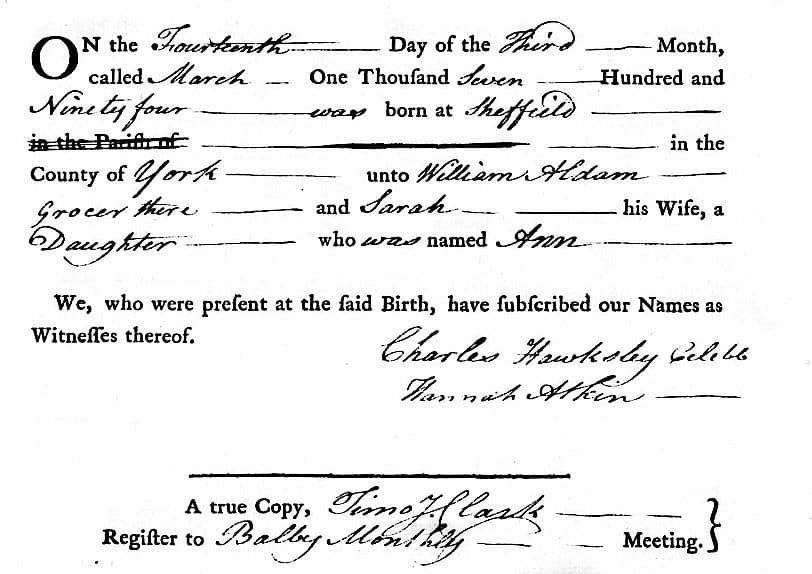 ON the Fourteenth Day of the Third Month,
called March One Thouſand Seven Hundred and
Ninety four was born at Sheffield
in the Pariſh of in the
County of York unto William Aldam
Grocer there and Sarah his Wife, a
Daughter who was named Ann
We, who were preſent at the ſaid Birth, have ſubſcribed our Names as
Witneſſes thereof.
Charles Hawksley
Hannah Atkin
A true Copy, Timo. J. Clark
Regiſter to Balby Monthly Meeting.